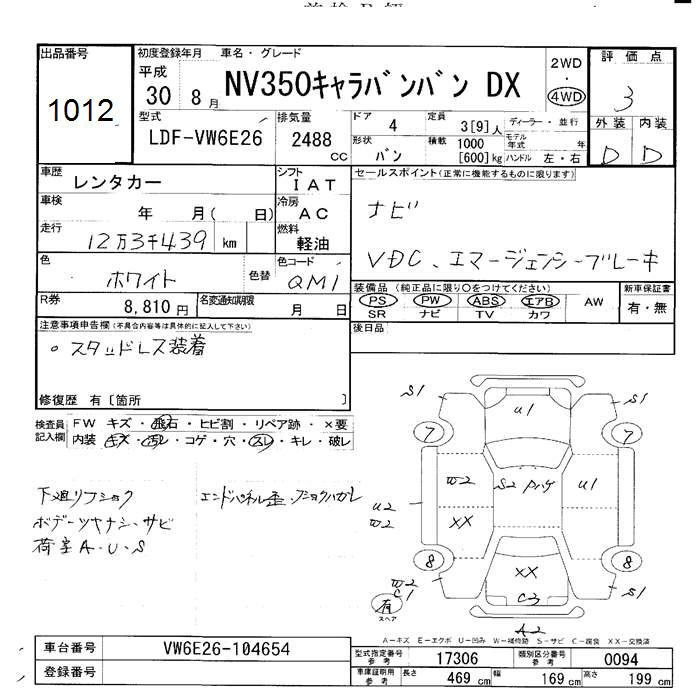 出品番号
1012
初度登録年月 車名・グレード
平成
30 8 月
NV350キャラバンバン DX
2WD
・
4WD
評価点
3
外装 内装
D D
型式
LDF-VW6E26
排気量
2488
CC
ドア 4
形状 バン
定員 3[9] 人
積載 1000
[600] kg
ディーラー・並行
モデル年式 年
ハンドル 左・右
車歴 レンタカー
シフト I A T
車検 年 月( 日)
冷房 A C
走行 12万3千439 km
燃料 軽油
色 ホワイト 色替
色コード QM1
R券 8,810 円
名変通知期限 月 日
セールスポイント(正常に機能するものに限ります)
ナビ
VDC、エマージェンシーブレーキ
装備品 (純正品に限り○をつけてください)
PS PW ABS エアB AW
SR ナビ TV カワ
新車保証書
有・無
後日品
注意事項申告欄(不具合内容等は具体的に記入して下さい)
○ スタッドレス装着
修復歴 有〔箇所 〕
検査員記入欄
FW キズ・飛石・ヒビ割・リペア跡・×要
内装 キズ・汚レ・コゲ・穴・スレ・キレ・破レ
下廻りフショク
エンドパネル歪・フショクハガレ
ボデーツヤナシ・サビ
荷室A・U・S
S1
U1
S1
7
7
W2
S2
U1
U2
W2
XX
8
8
XX
W2
C1
C3
S1
有
スペア
A2
A－キズ E－エクボ U－凹み W－補修跡 S－サビ C－腐食 XX－交換済
車台番号 VW6E26-104654
登録番号
型式指定番号 参考 17306
類別区分番号 参考 0094
車庫証明用 参考 長さ 469 cm 幅 169 cm 高さ 199 cm